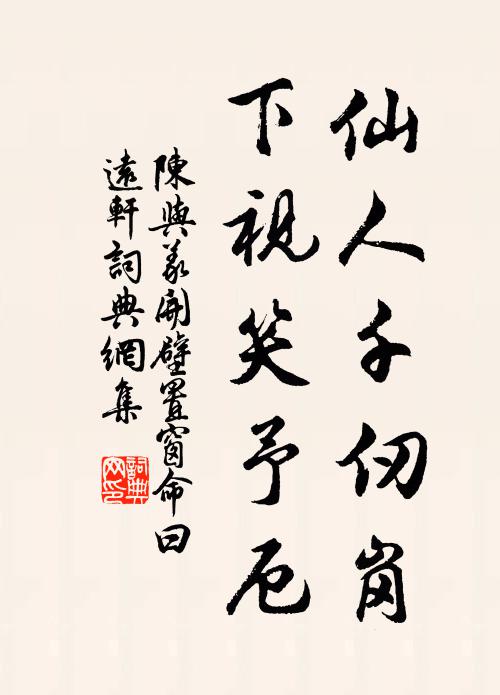 仙人千仞崗
下視笑予厄
陳與義開壁置窗命曰
遠軒詞典網集
詞典
网印